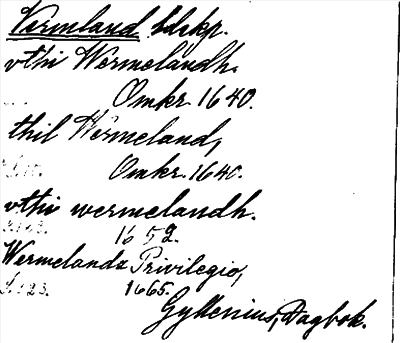 Vermland ldskp.
vthi Wermelandh.
Omkr. 1640.
thil Wermeland,
Omkr. 1640.
vthi wermelandh.
1652.
Wermelandz Privilegio,
S. 123. 1665.
Gyllenius, Dagbok.